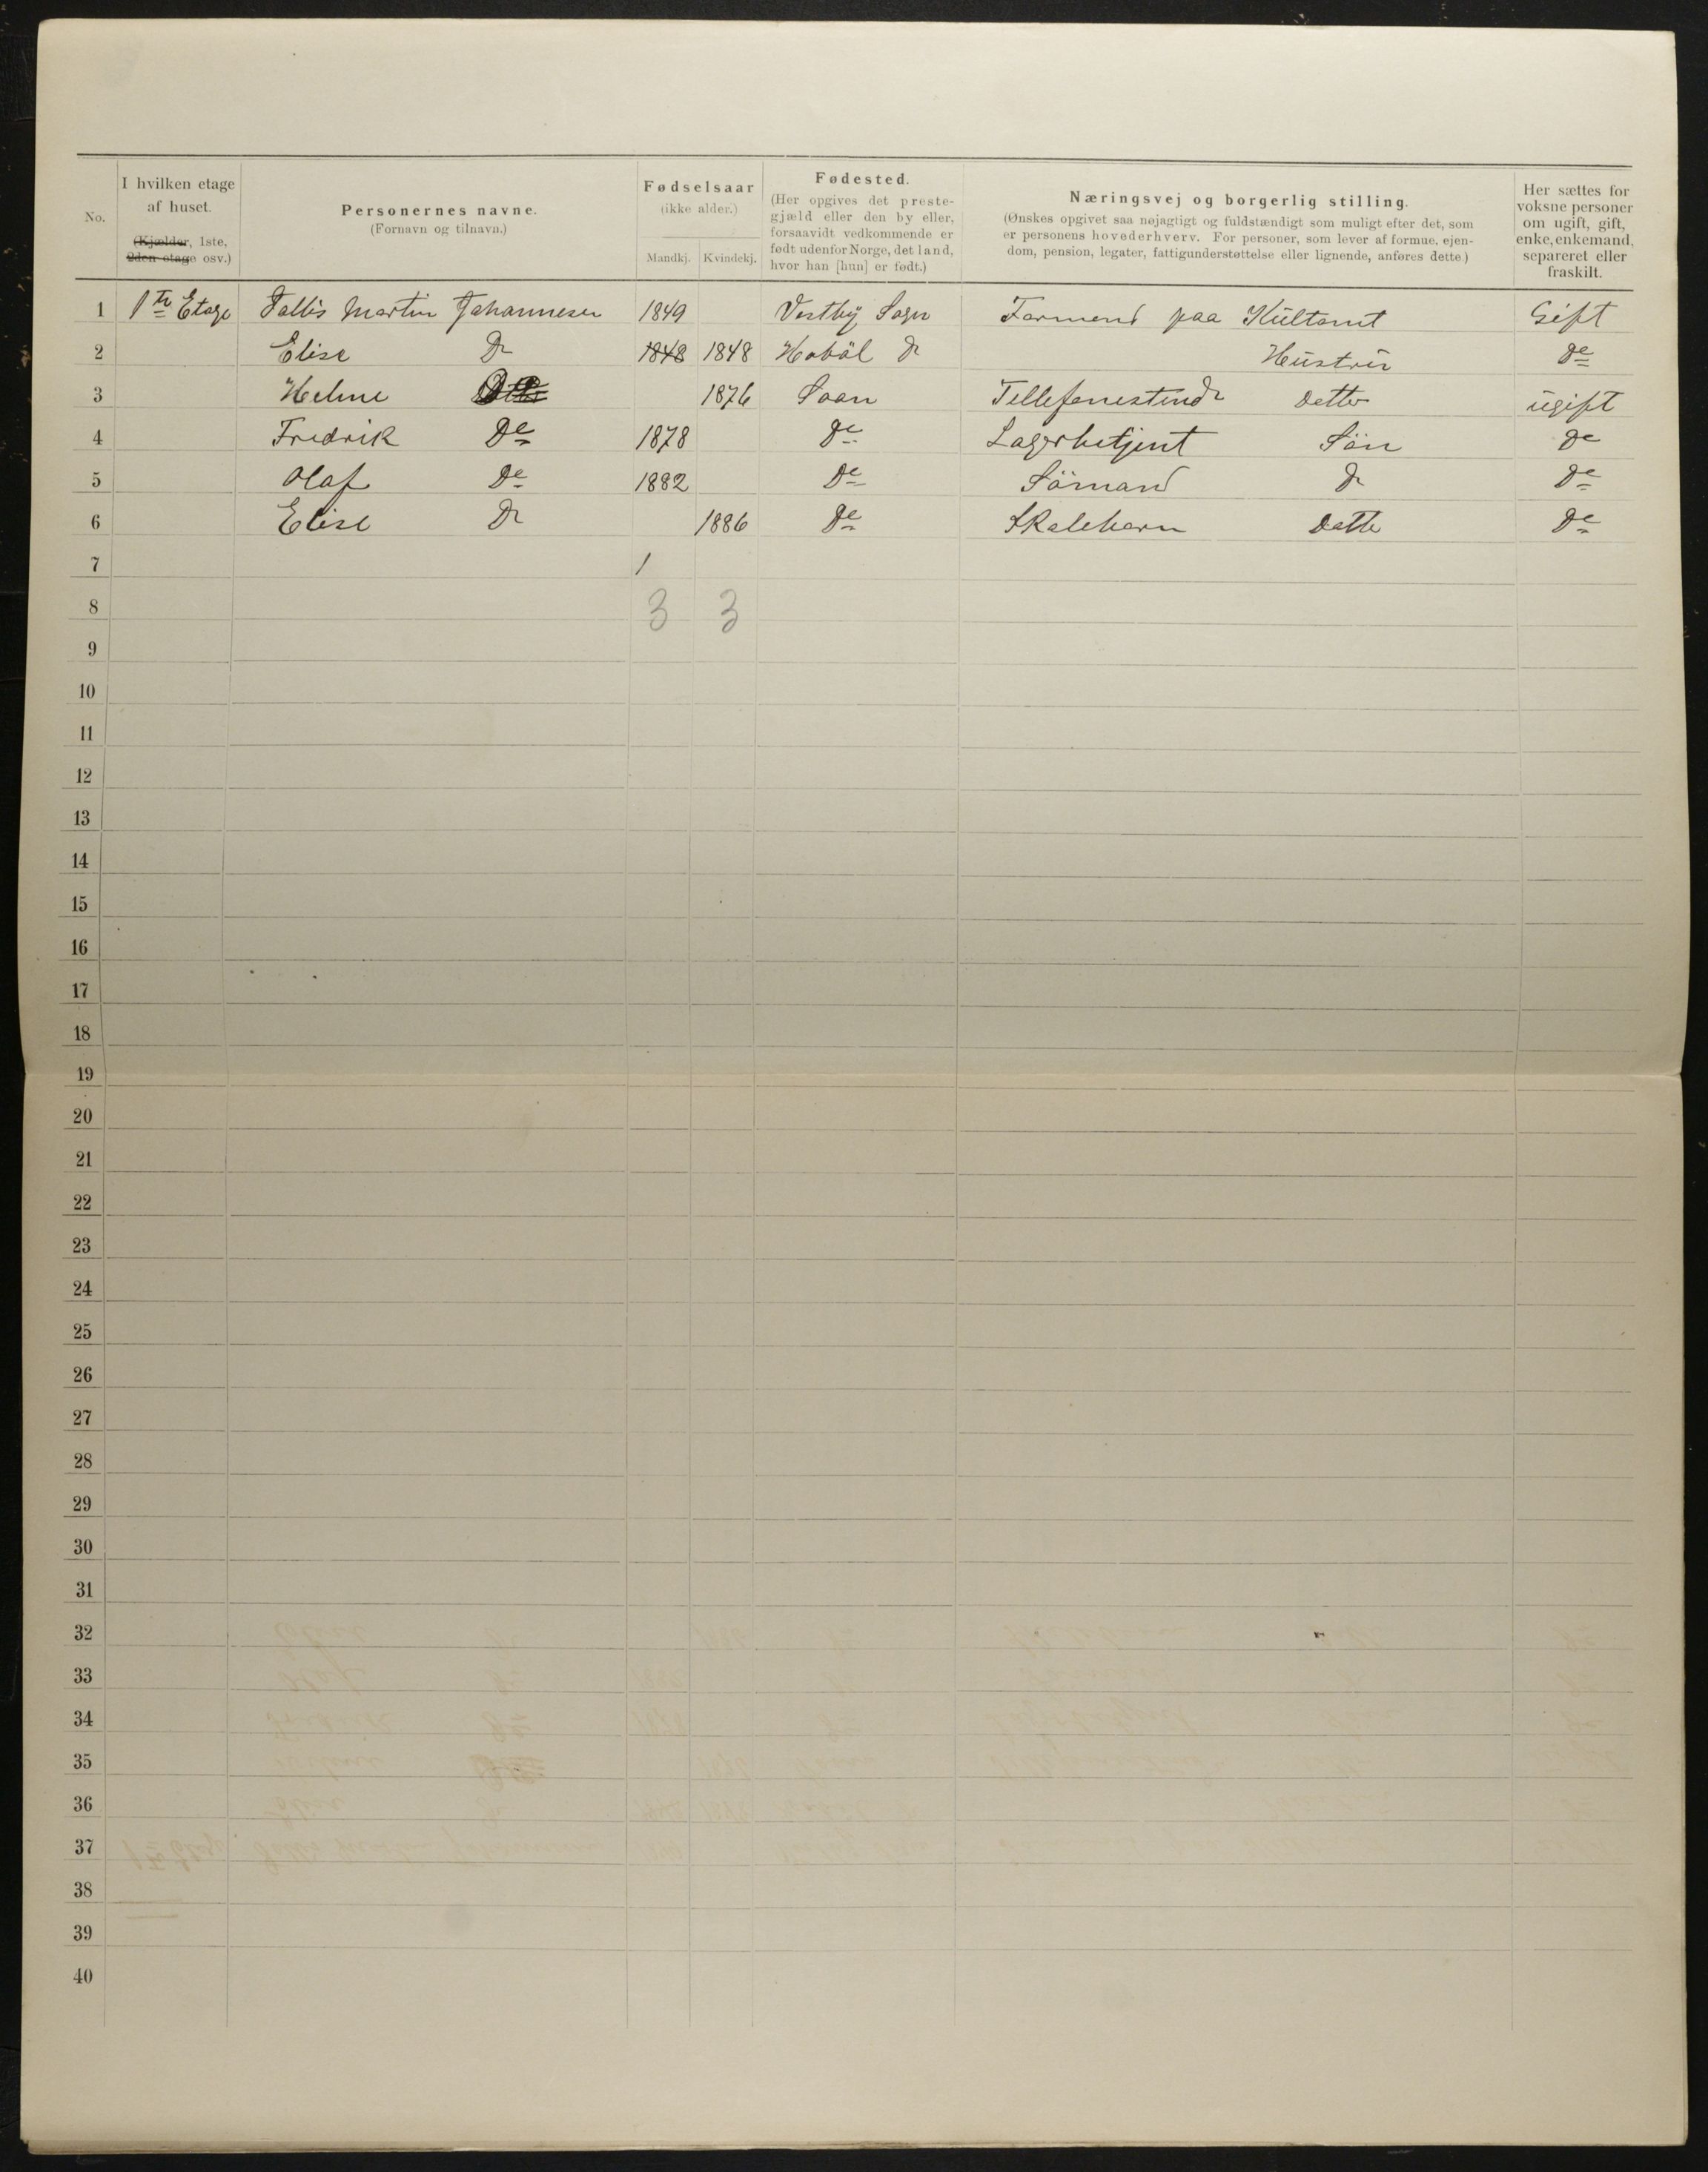 No.
I hvilken etage af huset. (Kjælder, 1ste, 2den etage osv.)
Personernes navne. (Fornavn og tilnavn.)
Fødselsaar (ikke alder.)
Mandkj. Kvindekj.
Fødested. (Her opgives det prestegjæld eller den by eller, forsaavidt vedkommende er født udenfor Norge, det land, hvor han [hun] er født.)
Næringsvej og borgerlig stilling. (Ønskes opgivet saa nøjagtigt og fuldstændigt som muligt efter det, som er personens hovederhverv. For personer, som lever af formue, ejendom, pension, legater, fattigunderstøttelse eller lignende, anføres dette.)
Her sættes for voksne personer om ugift, gift, enke, enkemand, separeret eller fraskilt.
1 1te Etage Martin Johannesen 1849 Vestby Sogn Formend paa Gift
2 Elise Do 1848 1848 Hobøl Do Hustru De
3 Helene 1876 Soon Datter ugift
4 Fredrik De 1878 De Lagerbetjent Søn De
5 Olaf De 1882 De Sömand Do De
6 Elise Do 1886 De Skolebarn Datte De
7 1
8 3 3
9
10
11
12
13
14
15
16
17
18
19
20
21
22
23
24
25
26
27
28
29
30
31
32
33
34
35
36
37
38
39
40